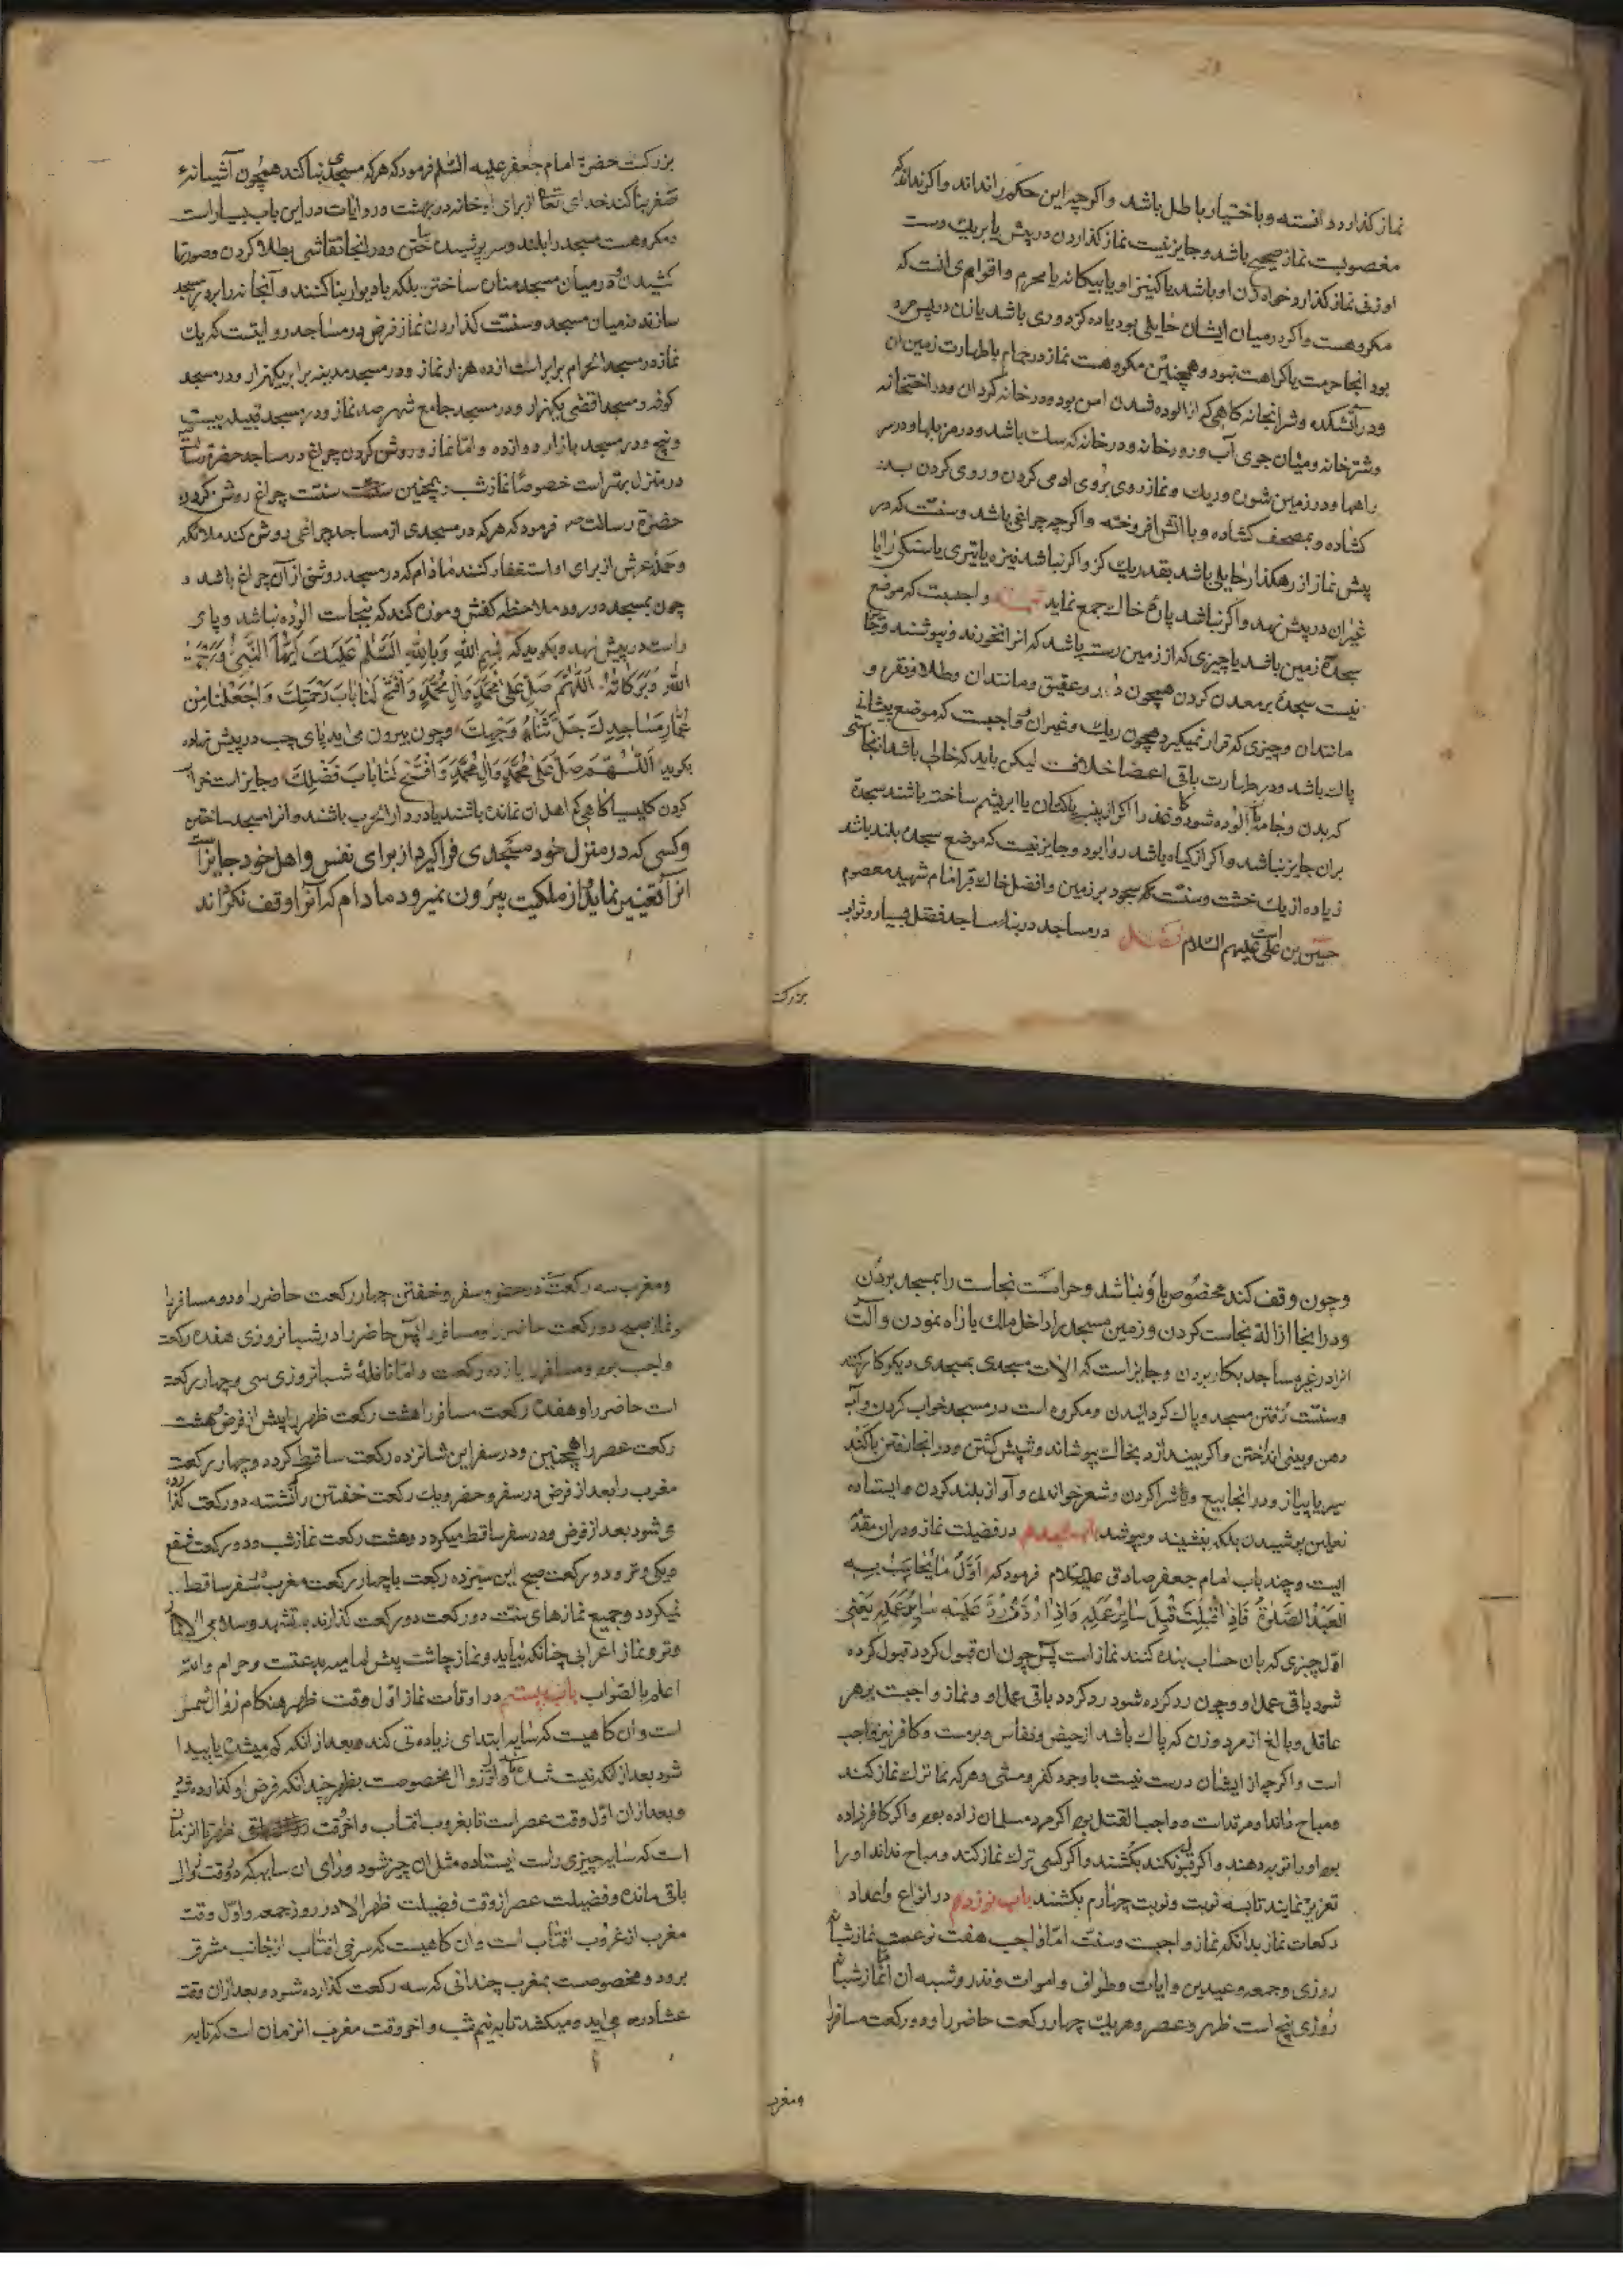 نماز گذارد دانسته و باختیار باطل باشد و اگرچه این حکم را نداند و اگر نداند که
مغصوبست نماز صحیح باشد و جایز نیست نماز گذاردن در پیش یا بریک دست
او زنی نماز گذارد خواه زن او باشد یا کنیز او یا بیگانه یا محرم و اقوام آنست که
مکروهست و اگر در میان ایشان حایلی بود یا ده گز دوری باشد یا زن در پس مرد
بود انجا حرمت یا کراهت نبود و همچنین مکروهست نماز در حمام با طهارت زمین آن
و در آتشکده و شرابخانه گاهی که از آلوده شدن امن بود و در خانه گردان و در
و شترخانه و میان جوی آب و رودخانه و در خانه که سک باشد و در مزبلها و در سر
راهها و در زمین شوره و ریک و نماز روی بروی ادمی کردن و روی کردن بدر
کشاده و بمصحف کشاده و با اتش افروخته و اگرچه چراغی باشد و سنت که در
پیش نماز از رهکذار حایلی باشد بقدر یک گز و اگر نباشد نیزه یا تیری یا سنگی را یا
غیر آن در پیش نهد و اگر نباشد پارهٔ خاک جمع نماید واجبست که موضع
سجدهٔ زمین باشد یا چیزی که از زمین رسته باشد که انرا نخورند و نپوشند و جایز
نیست سجده بر معدن کردن همچون و عقیق و مانند ان و طلا و نقره و
مانند ان و چیزی که قرار نمیگیرد همچون ریک و غیر ان و واجبست که موضع پیشانی
پاک باشد و در طهارت باقی اعضا خلافست لیکن باید که خالی باشد از نجاستی
که بدن و جامه بآن الوده شود و کاغذ را اگر از پنبه یا کتان یا ابریشم ساخته باشند سجده
بران جایز نباشد و اگر از گیاه باشد روا بود و جایز نیست که موضع سجده بلند باشد
زیاده از یک خشت و سنت که سجود بر زمین و افضل خاک قبر امام شهید معصوم
حسین بن علی است علیهم السلام فصل در مساجد در بناء مساجد فضل بسیار و ثواب
بزرکست
بزرکست حضرة امام جعفر علیه السلام فرمود که هر که مسجدی بنا کند همچون آشیانهٔ
بنا کند خدای تعالی از برای او خانه در بهشت و روایات در این باب بسیار است
و مکروهست مسجد را بلند و سر پوشیده ساختن و در انجا نقاشی بطلا کردن و صورتها
کشیدن و در میان مسجد مناره ساختن بلکه با دیوار بنا کنند و آبخانه را بر در مسجد
سازند نه میان مسجد و سنت گذاردن نماز فرض در مساجد روایتست که یک
نماز در مسجد الحرام برابر است از ده هزار نماز و در مسجد مدینه برابر یکهزار و در مسجد
کوفه و مسجد اقصی یکهزار و در مسجد جامع شهر صد نماز و در مسجد قبیله بیست
و پنج و در مسجد بازار دوازده و اما نماز و روشن کردن چراغ در مساجد حضرة رسالت
در منزل بهتر است خصوصا نماز شب و همچنین سنت سنتست چراغ روشن کردن
حضرة رسالت فرمود که هر که در مسجدی از مساجد چراغی روشن کند ملائکه
و حملهٔ عرش از برای او استغفار کنند مادام که در مسجد روشنی از آن چراغ باشد و
چون بمسجد در رود ملاحظه کفش و موزه کند که بنجاست الوده نباشد و پای
راست در پیش نهد و بگوید که بِسْمِ اللهِ وَبِاللهِ السَّلَامُ عَلَیْكَ اَیُّهَا النَّبِیُّ وَرَحْمَةُ
اللهِ وَبَرَکَاتُهُ اَللّٰهُمَّ صَلِّ عَلٰی مُحَمَّدٍ وَاٰلِ مُحَمَّدٍ وَافْتَحْ لَنَا بَابَ رَحْمَتِكَ وَاجْعَلْنَا مِنْ
عُمَّارِ مَسَاجِدِكَ جَلَّ ثَنَاءُ وَجْهِكَ و چون بیرون می اید پای چپ در پیش نهاده
بگوید اَللّٰهُمَّ صَلِّ عَلٰی مُحَمَّدٍ وَاٰلِ مُحَمَّدٍ وَافْتَحْ لَنَا بَابَ فَضْلِكَ و جایز است خراب
کردن کلیسیا گاهی که اهل ان نمانده باشند یا در دار الحرب باشند و انرا مسجد ساختن
و کسی که در منزل خود مسجدی فرا گیرد از برای نفس و اهل خود جایز است
انرا تغییر نماید و از ملکیت بیرون نمیرود مادام که آنرا وقف نکرداند
و چون وقف کند مخصوص باو نباشد و حرامست نجاست را بمسجد بردن
و در انجا ازالهٔ نجاست کردن و زمین مسجد را داخل ملک یا راه نمودن و آلت
انرا در غیر مساجد بکار بردن و جایز است که الات مسجدی بمسجدی دیگر کار کنند
و سنتست رفتن مسجد و پاک گردانیدن و مکروه است در مسجد خواب کردن و آب
دهن و بینی انداختن و اگر بیندازد بخاک بپوشاند و شپش کشتن و در انجا رفتن با کند
سیر یا پیاز و در انجا بیع و شرا کردن و شعر خواندن و آواز بلند کردن و ایستاده
نعلین پوشیدن بلکه بنشیند و بپوشد باب هیجدهم در فضیلت نماز و دران مقدمه
ایست و چند باب امام جعفر صادق علیه السلام فرمود که اَوَّلُ مَا یُحَاسَبُ بِهِ
الْعَبْدُ الصَّلٰوةُ فَاِذَا قُبِلَتْ قُبِلَ سَایِرُ عَمَلِهِ وَاِذَا رُدَّتْ رُدَّ عَلَیْهِ سَایِرُ عَمَلِهِ یعنی
اول چیزی که بان حساب بنده کنند نماز است پس چون ان قبول کردد قبول کرده
شود باقی عمل او و چون رد کرده شود رد کردد باقی عمل او و نماز واجبست بر هر
عاقل و بالغ از مرد و زن که پاک باشد از حیض و نفاس و برست و کافر نیز واجب
است و اگرچه از ایشان درست نیست با وجود کفر و هر که ترک نماز کند
و مباح داند او مرتد است و واجب القتل بود اگر مرد مسلمان زاده بود و اگر کافر زاده
بود او را توبه دهند و اگر قبول نکند بکشند و اگر کسی ترک نماز کند و مباح نداند او را
تعزیر نمایند تا سه نوبت و نوبت چهارم بکشند باب نوزدهم در انواع و اعداد
رکعات نماز بدانکه نماز واجبست و سنت اما واجب هفت نوعست نماز شبانه
روزی و جمعه و عیدین و ایات و طواف و اموات و نذر و شبه ان اما نماز شبانه
روزی پنج است ظهر و عصر و هر یک چهار رکعت حاضر را و دو رکعت مسافر را
ومغرب
و مغرب سه رکعت در حضر و سفر و خفتن چهار رکعت حاضر را و دو مسافر را
و نماز صبح دو رکعت حاضر را و مسافر را پس حاضر را در شبانروزی هفده رکعت
واجب بود و مسافر را یازده رکعت و اما نافلهٔ شبانروزی سی و چهار رکعت
است حاضر را و هفده رکعت مسافر را هشت رکعت ظهر را پیش از فرض و هشت
رکعت عصر را همچنین و در سفر این شانزده رکعت ساقط کرده و چهار رکعت
مغرب را بعد از فرض در سفر و حضر و یک رکعت خفتن را نشسته دو رکعت گذارده
می شود بعد از فرض و در سفر ساقط میگردد و هشت رکعت نماز شب و دو رکعت شفع
و یکی وتر و دو رکعت صبح این سیزده رکعت با چهار رکعت مغرب در سفر ساقط
نمیگردد و جمیع نمازهای سنت دو رکعت دو رکعت گذارند بتشهد و سلامی الا نماز
وتر و نماز اعرابی چنانکه بیاید و نماز چاشت پیش امامیه بدعتست و حرام والله
اعلم بالصواب باب بیستم در اوقات نماز اول وقت ظهر هنگام زوال شمس
است و ان گاهیست که سایه ابتدای زیادتی کند بعد از آنکه کم میشد یا پیدا
شود بعد از آنکه نیست شده باشد و اول زوال مخصوصست بظهر چندانکه فرض او گذارده شود
و بعد از ان اول وقت عصر است تا بغروب افتاب و اخر وقت ظهر تا انزمان
است که سایه چیزی راست ایستاده مثل ان چیز شود ورای ان سایه که در وقت زوال
باقی مانده و فضیلت عصر از وقت فضیلت ظهر الا در روز جمعه و اول وقت
مغرب از غروب افتاب است و ان گاهیست که سرخی افتاب از جانب مشرق
برود و مخصوصست بمغرب چندانی که سه رکعت گذارده شود و بعد از ان وقت
عشا در می اید و میکشد تا به نیم شب و اخر وقت مغرب انزمان است که تا به